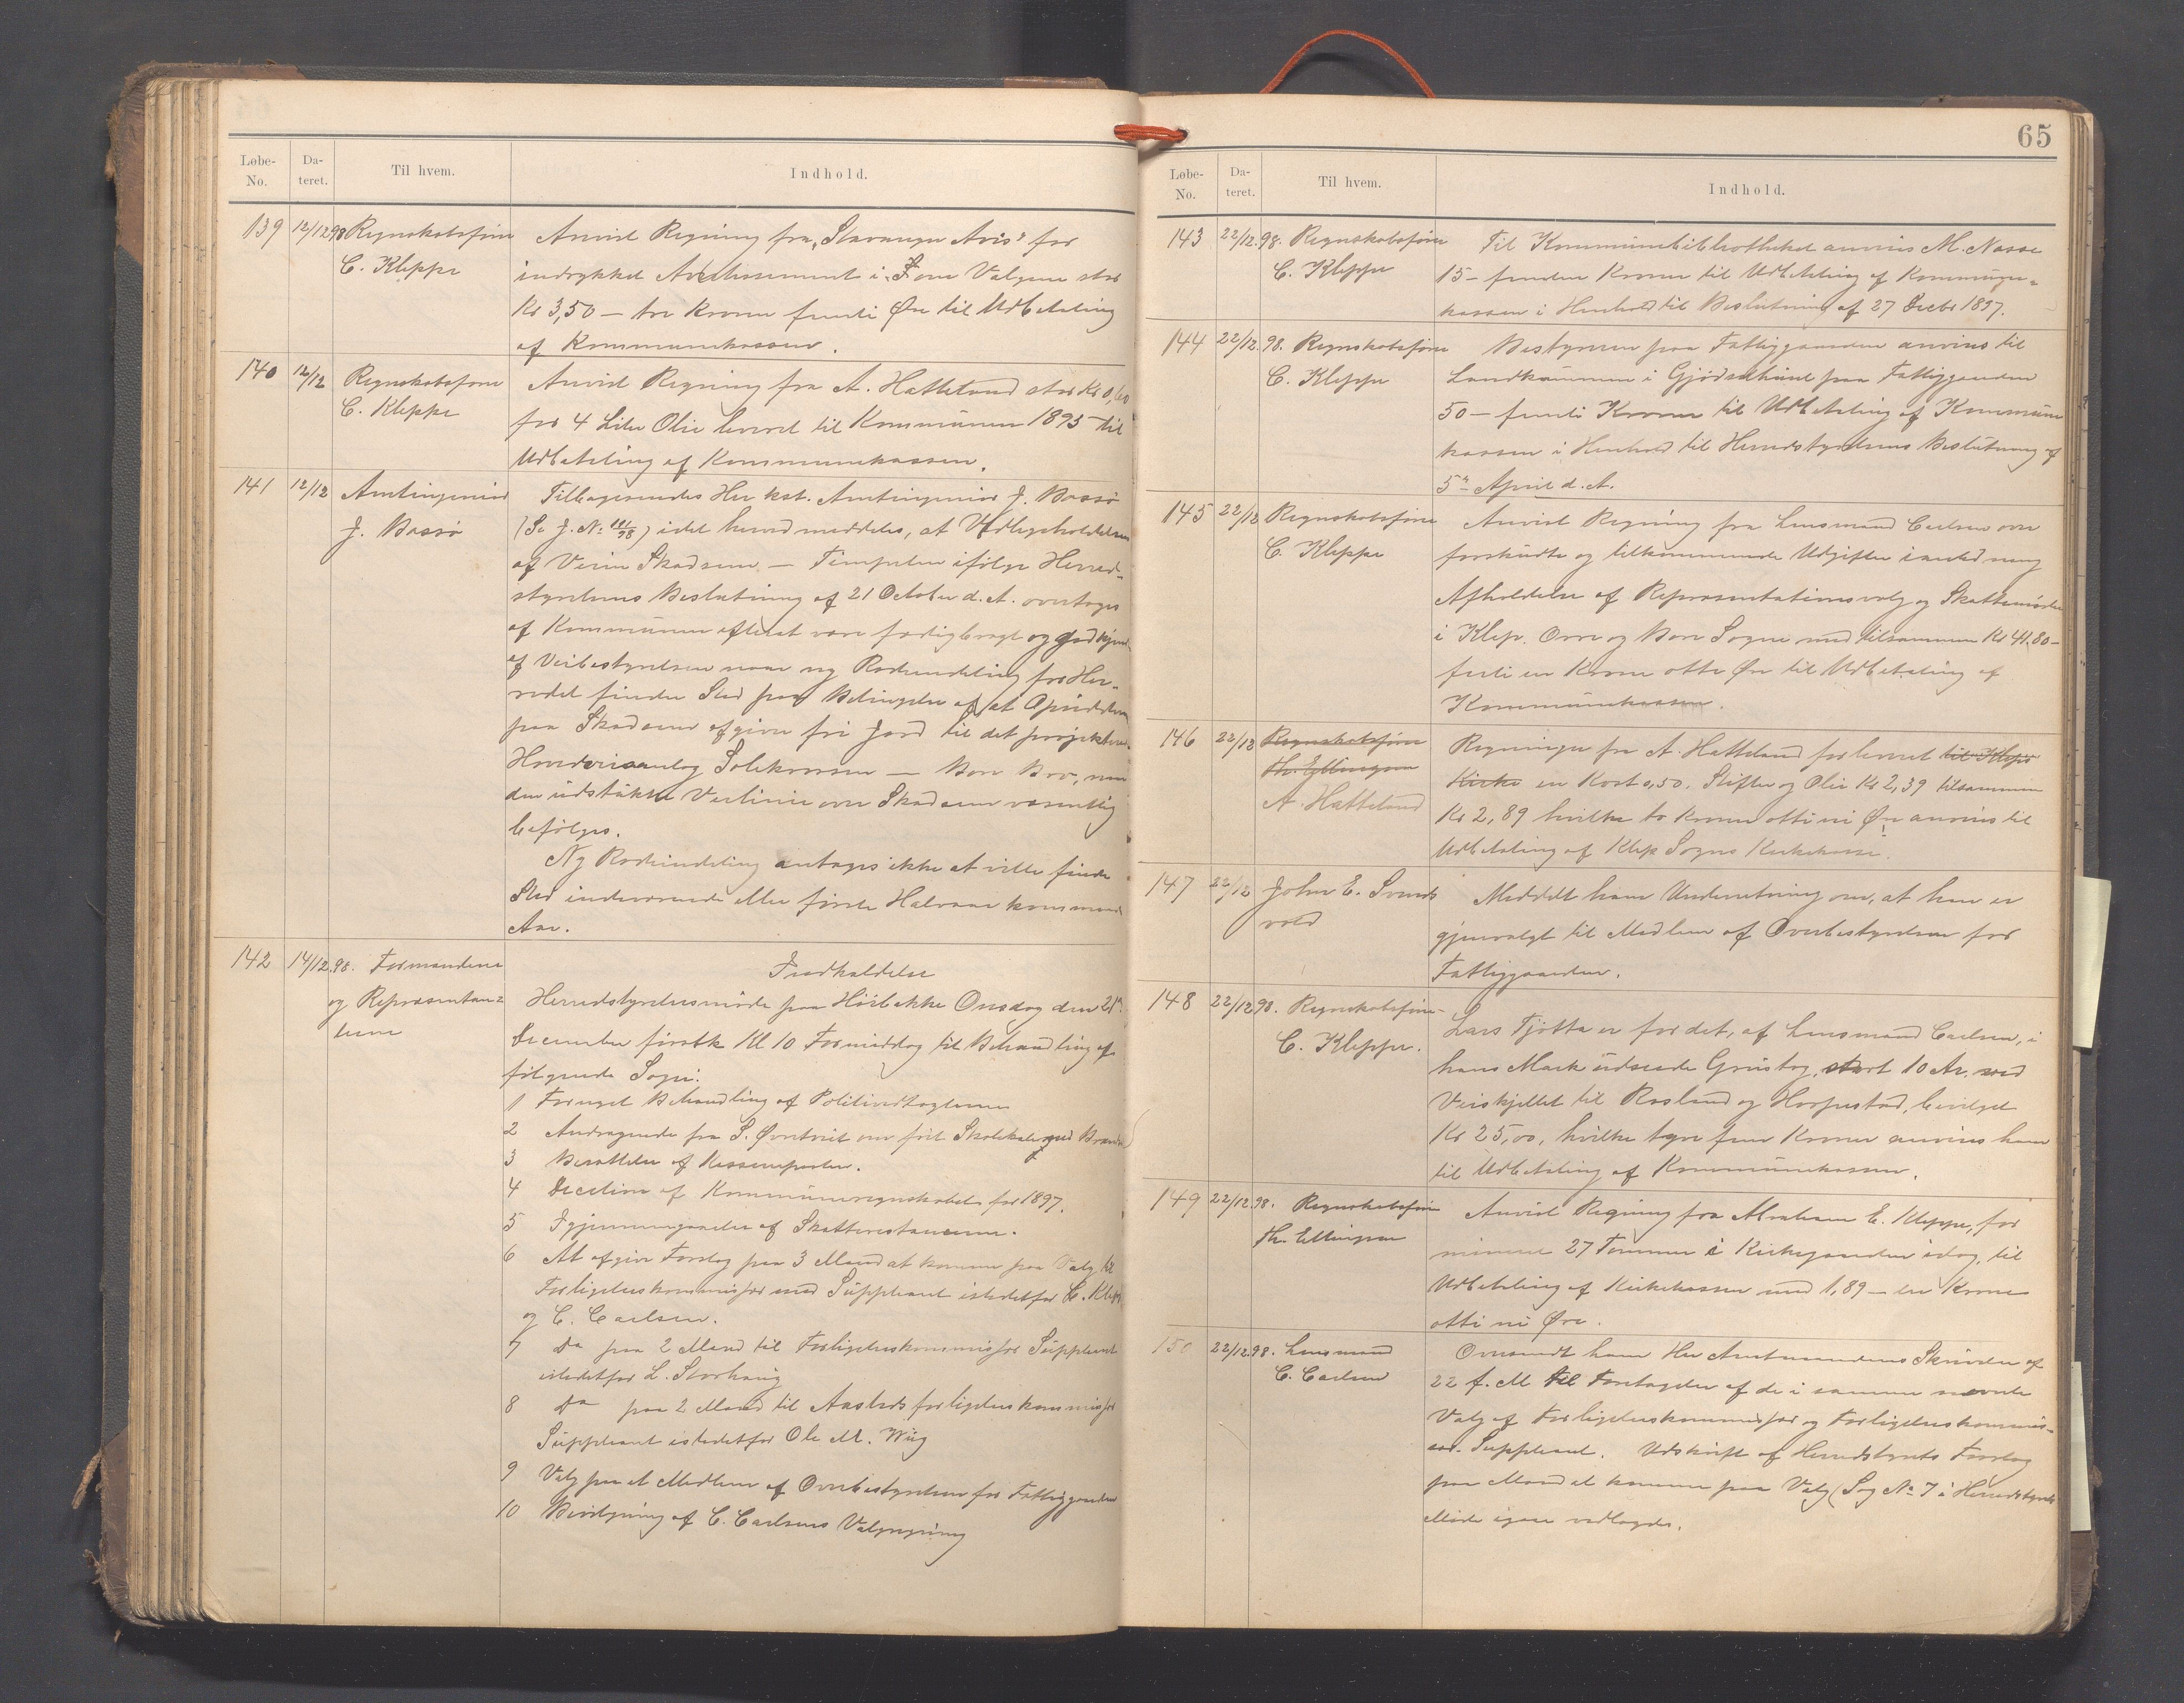 Løbe-
No.
Da-
teret.
Til hvem.
Indhold.
139 12/12 98 Regnskabsfører Anvist Regning fra „Stavanger Avis" for
C. Kleppe indrykket Avertissement i. S. om Valgene stor
Kr 3,50 — tre Kroner femti Øre til Udbetaling
af Kommunekassen.
140 12/12 Regnskabsfører Anvist Regning fra A. Hatteland stor Kr 0,60
C. Kleppe for 4 Liter Olie leveret til Kommunen 1895 til
Udbetaling af Kommunekassen.
141 12/12 Amtingeniør Tilbagesendes Hr kst. Amtingeniør J. Bassø
J. Bassø (Se J. No 121/98) idet herved meddeles, at Vedligeholdelsen
af Veien Skadsem — Timpelen ifølge Herred-
styrelsens Beslutning af 21 October d. A. overtages
af Kommunen efterat være færdigbragt og godkjendt
af Veibestyrelsen naar ny Rodeinddeling for Her-
redet finder Sted paa Betingelse af at Opsidderne
paa Skadsem afgiver fri Jord til det projekterede
Hovedveianlæg Solekrossen — Bore Bro, naar
den udstukne Veilinie over Skadsem væsentlig
befølges.
Ny Rodeinddeling antages ikke at ville finde
Sted indeværende eller første Halvaar kommende
Aar.
142 14/12.98. Formændene Indkaldelse
og Repræsentan- Herredstyrelsesmøde paa Høibakke Onsdag den 21de
terne December førstk Kl 10 Formiddag til Behandling af
følgende Sager:
1 Fornyet Behandling af Politivedtægterne
2 Andragende fra S. Øvrtveit om frit Skolelokale ved Braude
3 Besættelse af Kassererposten.
4 Decision af Kommuneregnskabet for 1897.
5 Igjennemgaaelse af Skatterestancerne.
6 At afgive Forslag paa 3 Mænd at komme paa Valg til
Forligelseskommissær med Suppleant istedetfor C. Kleppe
og C. Carlsen.
7 Do paa 2 Mænd til Forligelseskommissær Suppleant
istedetfor L. Storhaug
8 Do paa 2 Mænd til Aastedsforligelseskommissær
Suppleant istedetfor Ole M. Wiig
9 Valg paa et Medlem af Overbestyrelsen for Fattiggaarden
10 Bevilgning af C. Carlsens Valgregning
65
Løbe-
No.
Da-
teret.
Til hvem.
Indhold.
143 22/12.98. Regnskabsfører Til Kommunebibliotheket anvises M. Næsse
C. Kleppe 15 — femten Kroner til Udbetaling af Kommune-
kassen i Henhold til Beslutning af 27 Decbr 1897.
144 22/12.98. Regnskabsfører Bestyreren paa Fattiggaarden anvises til
C. Kleppe Landkummen i Gjødselhuset paa Fattiggaarden
50 — femti Kroner til Udbetaling af Kommune
kassen i Henhold til Herredstyrelsens Beslutning af
5te April d. A.
145 22/12 Regnskabsfører Anvist Regning fra Lensmand Carlsen over
C. Kleppe forskudte og tilkommende Udgifter i anledning
Afholdelse af Repræsentationsvalg og Skattemøder
i Klep. Orre og Bore Sogne med tilsammen Kr 41.80 —
firti en Krone otti Øre til Udbetaling af
Kommunekassen.
146 22/12 Regnskabsfører Regninger fra A. Hatteland for leveret til Klep
Th. Ellingsen Kirke en Kost 0,50. Stifter og Olie Kr 2,39 tilsammen
A. Hatteland Kr 2,89 hvilke to Kroner otti ni Øre anvises til
Udbetaling af Klep Sogns Kirkekasse.
147 22/12 John E. Sveinds Meddelt ham Underretning om, at han er
vold gjenvalgt til Medlem af Overbestyrelsen for
Fattiggaarden.
148 22/12 98. Regnskabsfører Lars Tjøtta er for det, af Lensmand Carlsen, i
C. Kleppe. hans Mark udseede Grustag, stort 10 Ar. ved
Veiskjellet til Rosland og Horpestad, bevilget
Kr 25,00, hvilke tyve fem Kroner anvises ham
til Udbetaling af Kommunekassen.
149 22/12 98. Regnskabsfører Anvist Regning fra Abraham E. Kleppe, for
Th. Ellingsen mineret 27 Tommer i Kirkegaarden idag, til
Udbetaling af Kirkekassen med 1,89 — en Krone
otti ni Øre.
150 22/12.98. Lensmand Oversendt ham Hr Amtmandens Skrivelse af
C. Carlsen 22 f. M til Foretagelse af de i samme nævnte
Valg af Forligelseskommissær og Forligelseskommis-
sær Suppleant. Udskrift af Herredstyrets Forslag
paa Mænd at komme paa Valg (Sag No 7 i Herredstyrets
Møde igaar vedlagdes.